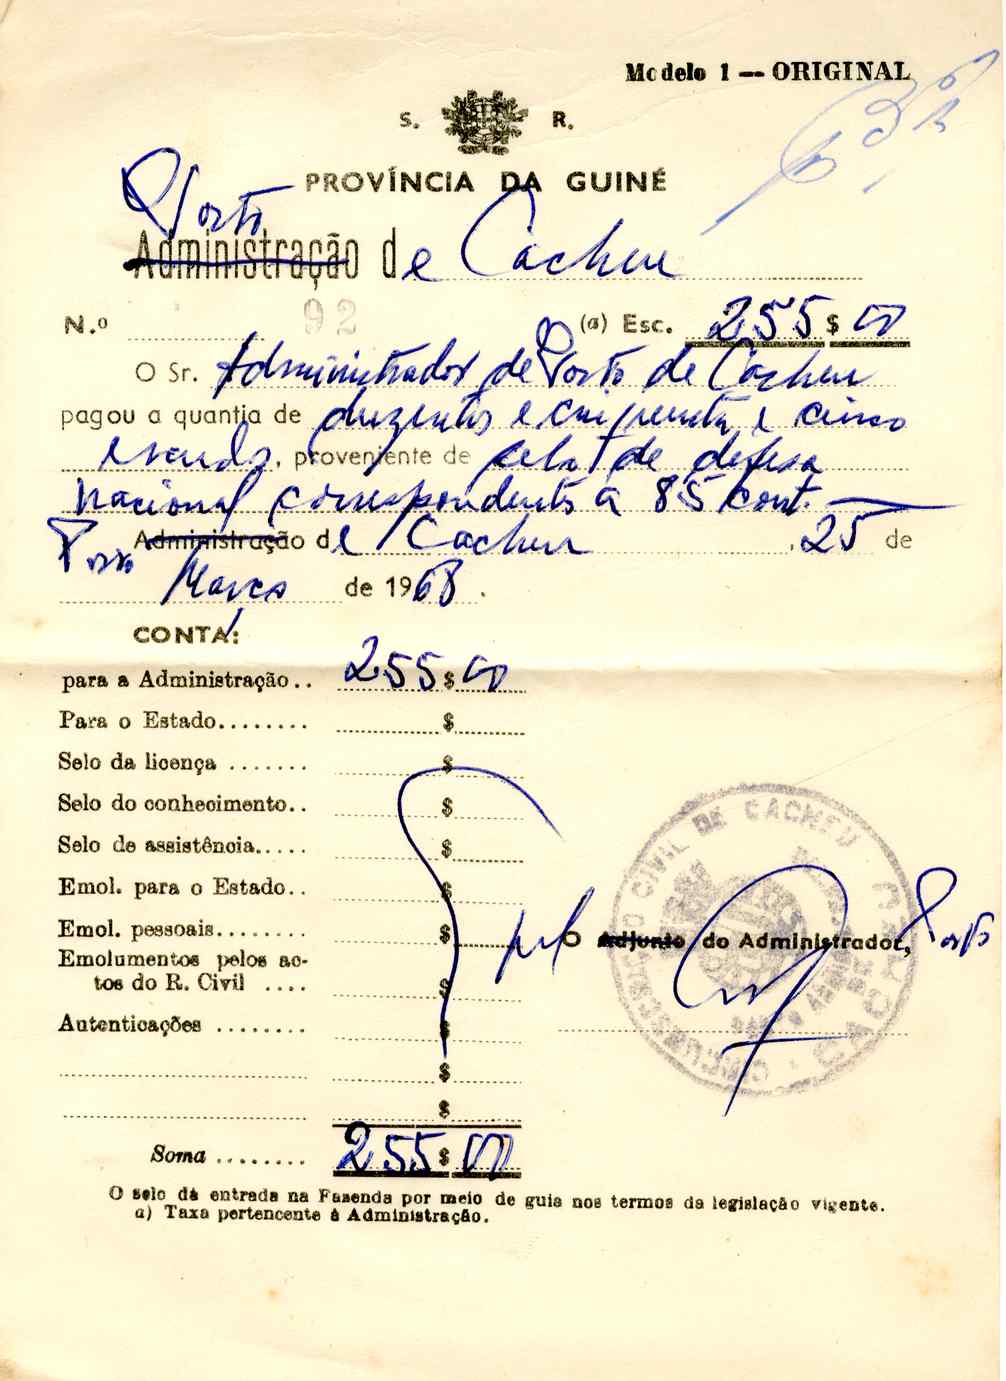 Modelo 1 — ORIGINAL
S. R.
PROVÍNCIA DA GUINÉ
Posto
Administração de Cacheu
N.º 92 (a) Esc. 255$00
O Sr. Administrador de Posto de Cacheu
pagou a quantia de duzentos e cinquenta e cinco
escudos, proveniente de selos de defesa
nacional correspondente a 85 cont.
Posto Administração de Cacheu, 25 de
Março de 1968.
CONTA:
para a Administração.. 255$00
Para o Estado........ $
Selo da licença ....... $
Selo do conhecimento.. $
Selo de assistência..... $
Emol. para o Estado.. $
Emol. pessoais........ $
Emolumentos pelos ac-
tos do R. Civil .... $
Autenticações ........ $
$
$
CIRCUNSCRIÇÃO CIVIL DE CACHEU
O Adjunto do Administrador, Posto
Soma ........ 255$00
O selo dá entrada na Fazenda por meio de guia nos termos da legislação vigente.
a) Taxa pertencente à Administração.